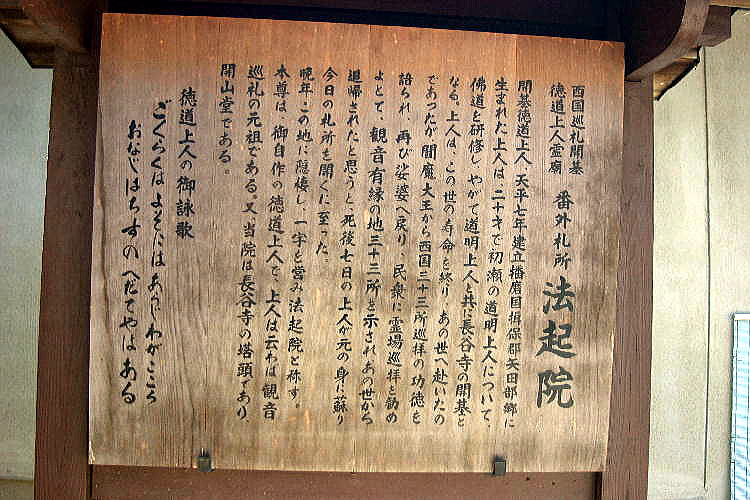 西国巡礼開基
徳道上人霊廟
番外札所 法起院
開基徳道上人、天平七年建立播磨国揖保郡矢田部郷に
生まれた上人は二十才で初瀬の道明上人について、
佛道を研修し、やがて道明上人と共に長谷寺の開基と
なる。上人は、この世の寿命を終り、あの世へ赴いたの
であったが閻魔大王から西国三十三所巡拝の功徳を
語られ、再び娑婆へ戻り、民衆に霊場巡拝を勧め
よとて、観音有縁の地三十三所を示されあの世から
追帰されたと思うと、死後七日の上人が元の身に蘇り
今日の札所を開くに至った。
晩年、この地に隠棲し、一宇を営み法起院と称す。
本尊は、御自作の徳道上人で、上人は云わば観音
巡礼の元祖である。又、当院は長谷寺の塔頭であり、
開山堂である。
徳道上人の御詠歌
ごくらくはよそにはあらじわがこころ
おなじはちすのへだてやはある